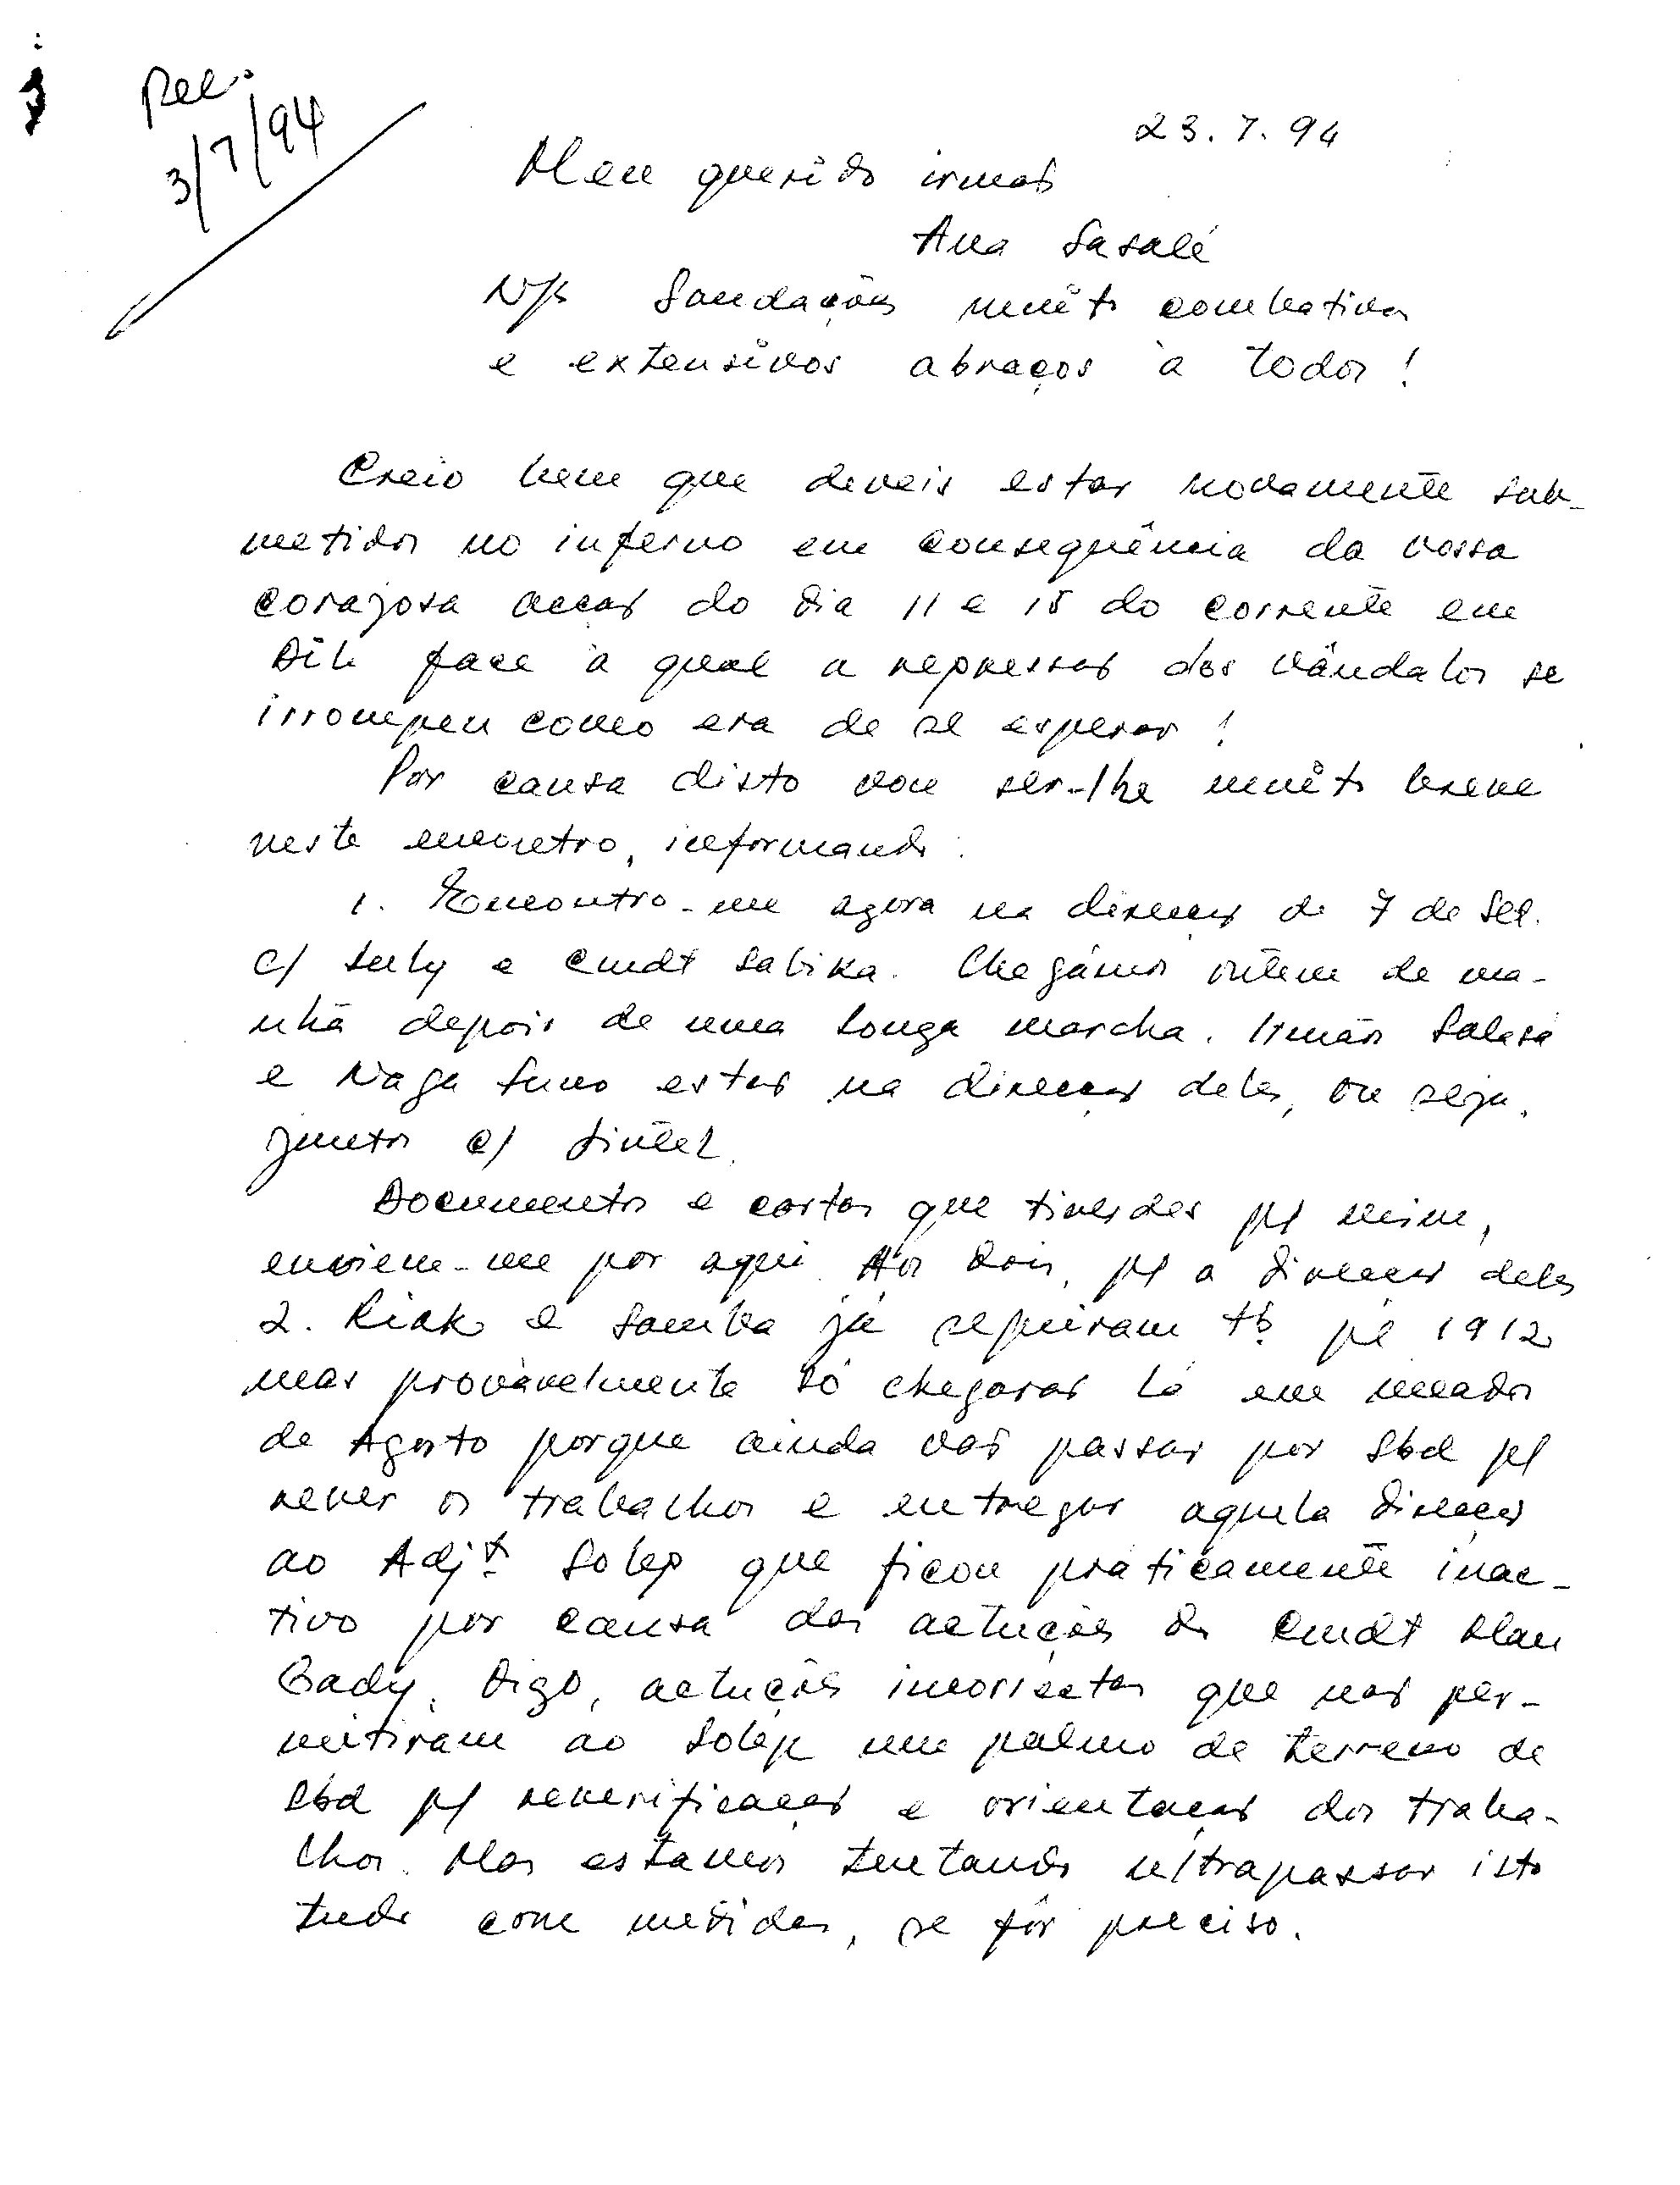 Rec.
3/7/94
23.7.94
Meu querido irmão
Ana Sasalé
N/s Saudações muito combativas
e extensivos abraços à todos!
Creio bem que deveis estar novamente sub-
metidos no inferno em consequência da vossa
corajosa acção do dia 11 e 15 do corrente em
Dili face à qual a repressão dos vândalos se
irrompeu como era de se esperar!
Por causa disto vou ser-lhe muito breve
neste encontro, informando:
1. Encontro-me agora na direcção de 7 de Set.
c/ Luly e Cmdt Sabika. Chegámos ontem de ma-
nhã depois de uma longa marcha. Irmãos Salasa
e Naga Suno estão na direcção deles, ou seja,
juntos c/
Documentos e cartas que tiverdes p/ mim,
enviem-me por aqui. Aos dois, p/ a direcção deles
2. Riak e Samba já seguiram tb. p/ 1912
mas provàvelmente só chegarão lá em meados
de Agosto porque ainda vão passar por Sbd p/
rever os trabalhos e entregar aquela direcção
ao Adjt. Solep que ficou pràticamente inac-
tivo por causa das actuções do Cmdt Mau
Cady. Digo, actuções incorrectas que não per-
mitiram ao Solep um palmo de terreno de
Sbd p/ reverificação e orientação dos traba-
lhos. Mas estamos tentando ultrapassar isto
tudo com medidas, se fôr preciso.